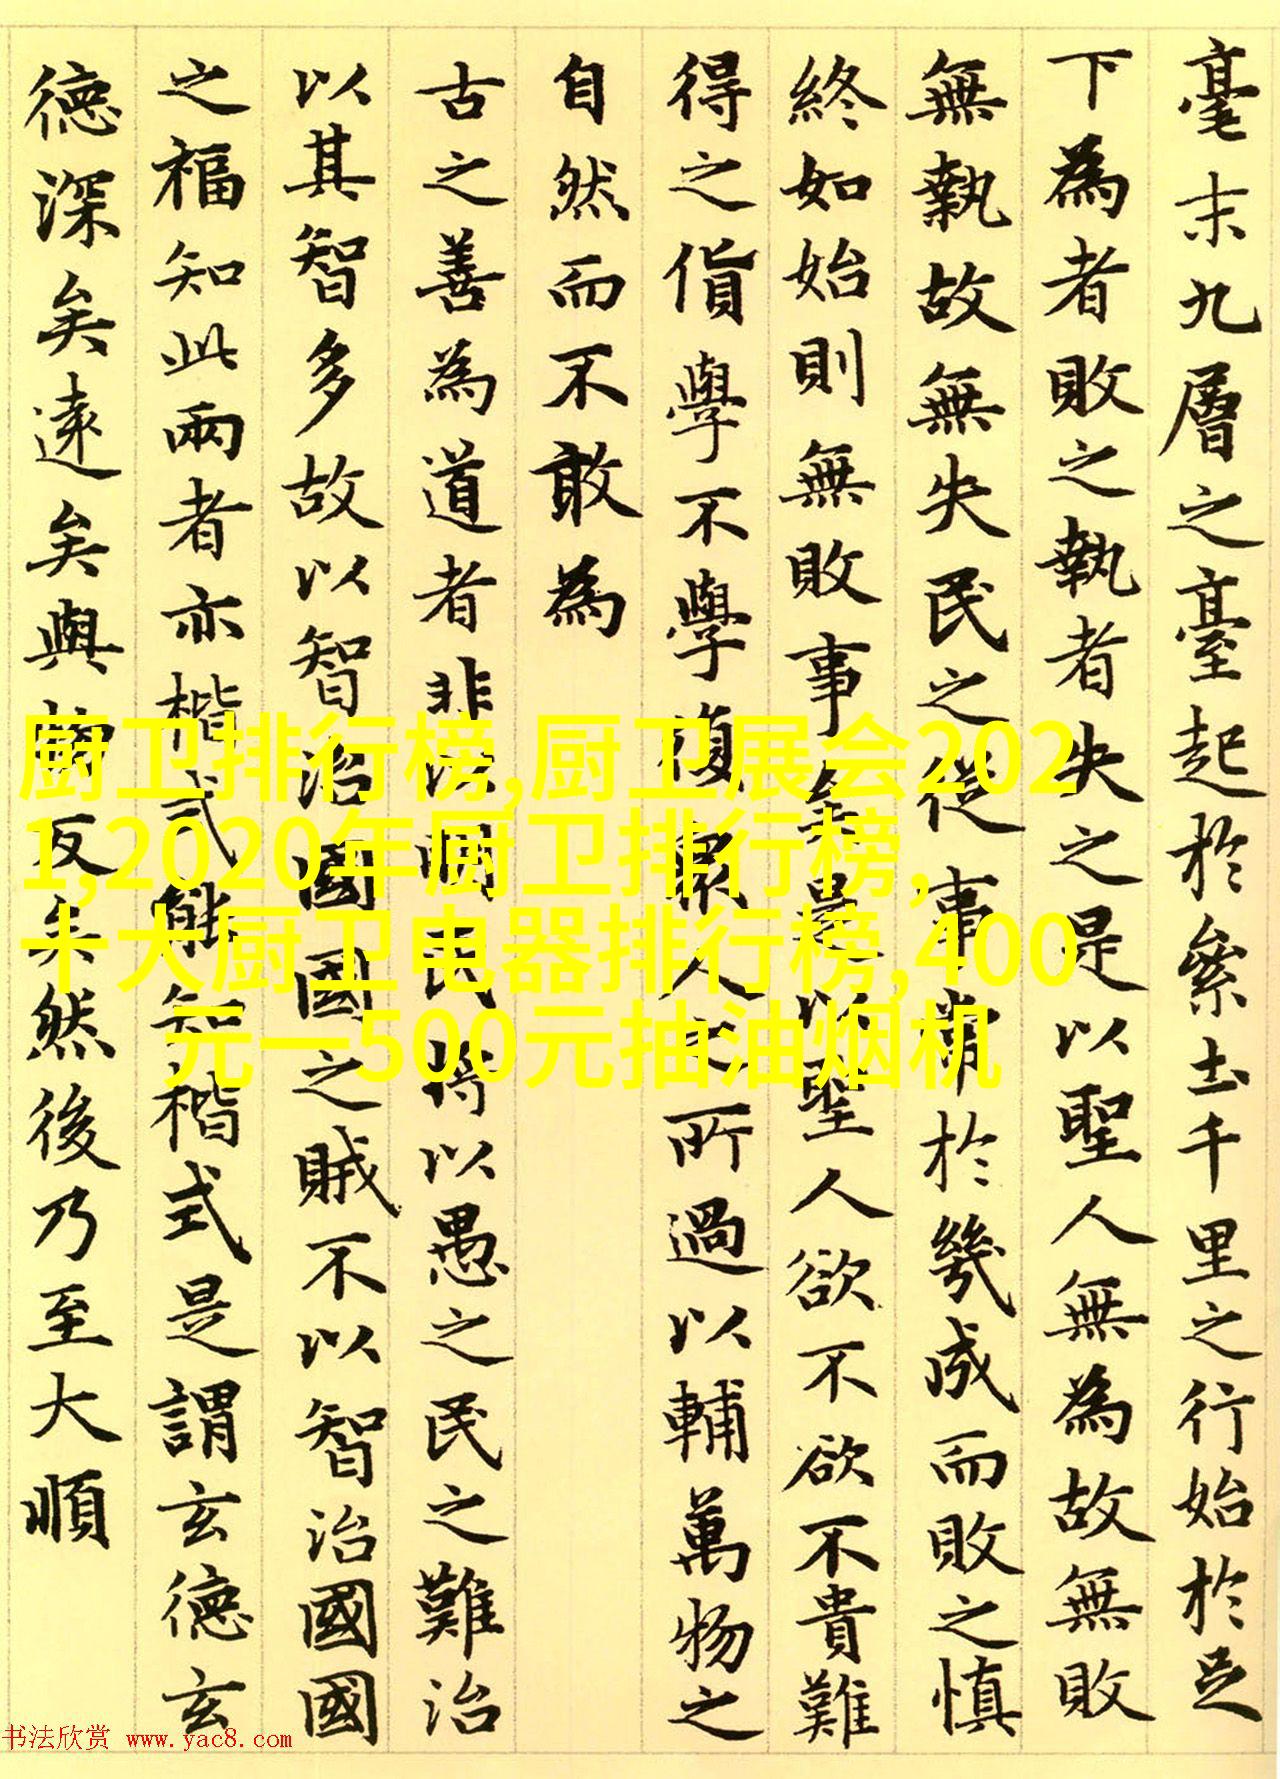 毫末九層之臺起於絫土千里之行始於足
下為者敗之執者失之是以聖人無為故無敗
無執故無失民之從事常於幾成而敗之慎
終如始則無敗事是以聖人欲不欲不貴難
得之貨學不學復眾人之所過以輔萬物之
自然而不敢為
古之善為道者非以明民將以愚之民之難治
以其智多故以智治國國之賊不以智治國國
之福知此兩者亦楷式能知楷式是謂玄德玄
德深矣遠矣與物反矣然後乃至大順
厨卫排行榜,厨卫展会202
1,2020年厨卫排行榜,
十大厨卫电器排行榜,400
元一500元抽油烟机
书法欣赏 www.yac8.com